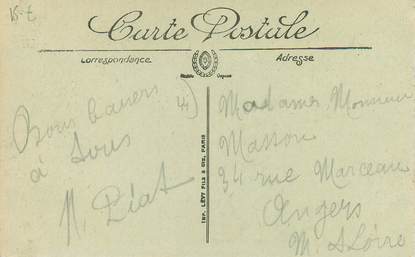 Carte Postale
Correspondance
Adresse
Bons baisers
à tous
M. Piat
IMP. LÉVY FILS & CIE, PARIS
Madame Monsieur
Masson
34 rue Marceau
Angers
M. & Loire